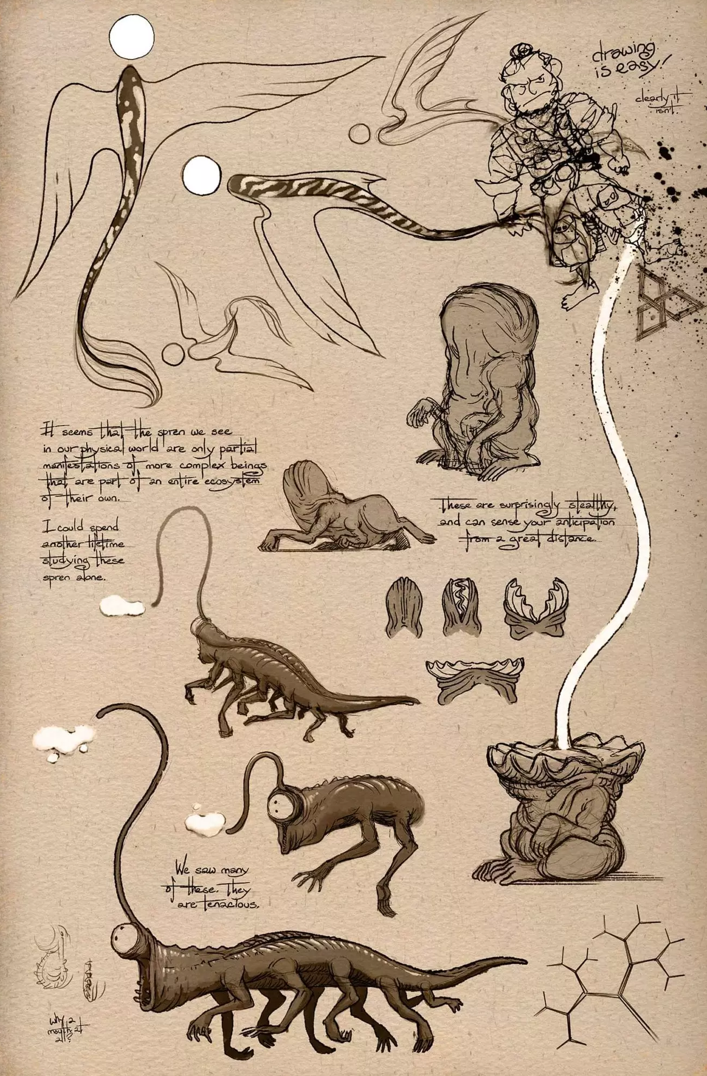 drawing
is easy!
clearly it
isn't.
It seems that the spren we see
in our physical world are only partial
manifestations of more complex beings
that are part of an entire ecosystem
of their own.
I could spend
another lifetime
studying these
spren alone.
These are surprisingly stealthy,
and can sense your anticipation
from a great distance.
We saw many
of these. They
are tenacious.
why